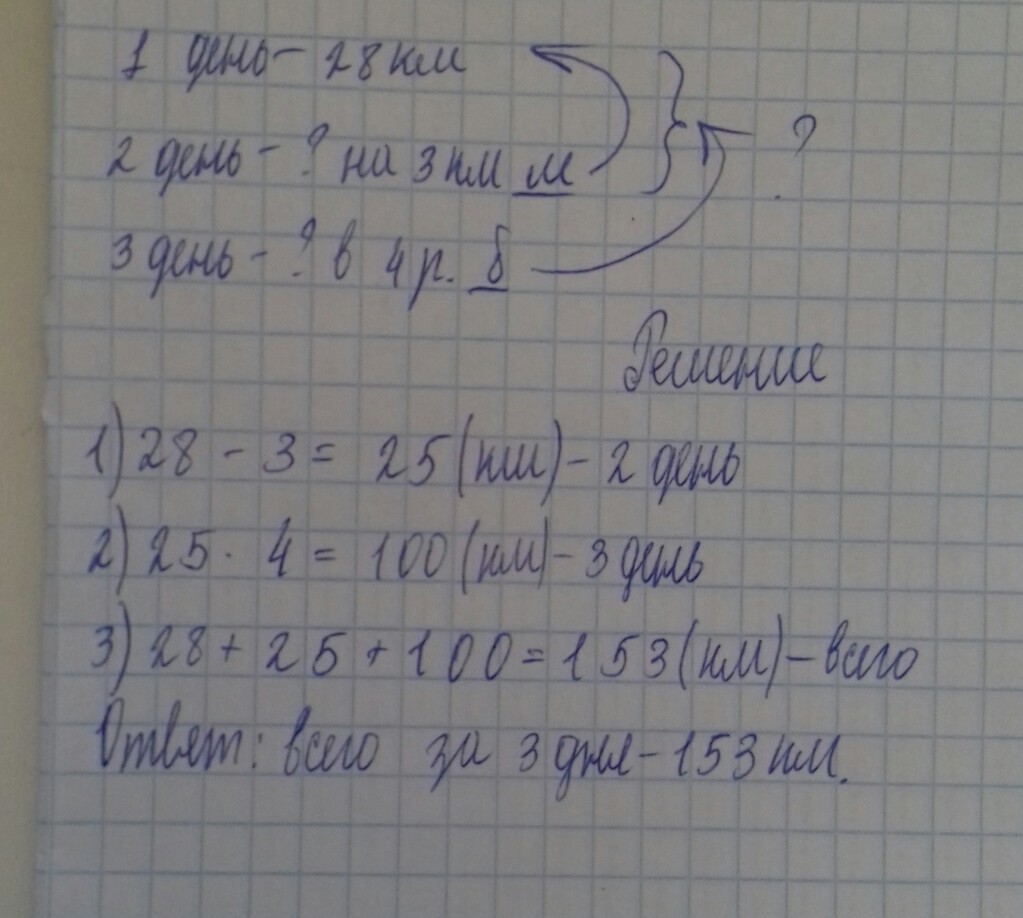 1 день - 28 км
2 день - ? на 3 км м
?
3 день - ? в 4 р. б
Решение
1) 28 - 3 = 25 (км) - 2 день
2) 25 · 4 = 100 (км) - 3 день
3) 28 + 25 + 100 = 153 (км) - всего
Ответ: всего за 3 дня - 153 км.